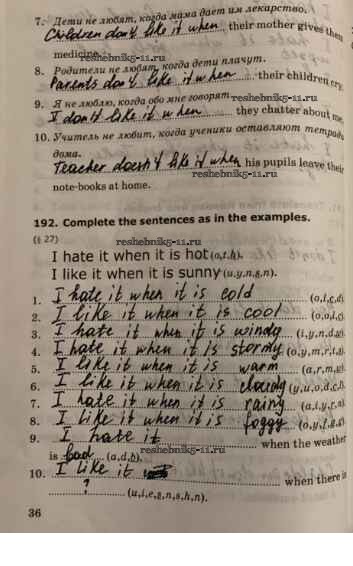 7. Дети не любят, когда мама дает им лекарство.
Children don't like it when their mother gives them
medicine.
reshebnik5-11.ru
8. Родители не любят, когда дети плачут.
Parents don't like it when their children cry.
9. Я не люблю, когда обо мне говорят
reshebnik5-11.ru
I don't like it when they chatter about me.
10. Учитель не любит, когда ученики оставляют тетради
дома.
Teacher doesn't like it when his pupils leave their
reshebnik5-11.ru
note-books at home.
192. Complete the sentences as in the examples.
(§ 27) reshebnik5-11.ru
I hate it when it is hot (o,t,h).
I like it when it is sunny (u,y,n,s,n).
1. I hate it when it is cold (o,l,c,d)
2. I like it when it is cool (o,o,l,c)
3. I hate it when it is windy (i,y,n,d,w)
4. I hate it when it is stormy (o,y,m,r,t,s)
5. I like it when it is warm (a,r,m,w)
6. I like it when it is cloudy (y,u,o,d,c,l)
7. I hate it when it is rainy (a,i,y,r,n)
8. I like it when it is foggy (o,y,f,g,g)
9. I hate it when the weather
reshebnik5-11.ru
is bad (a,d,b).
10. I like it when there is
? (u,i,e,g,n,s,h,n).
reshebnik5-11.ru
36